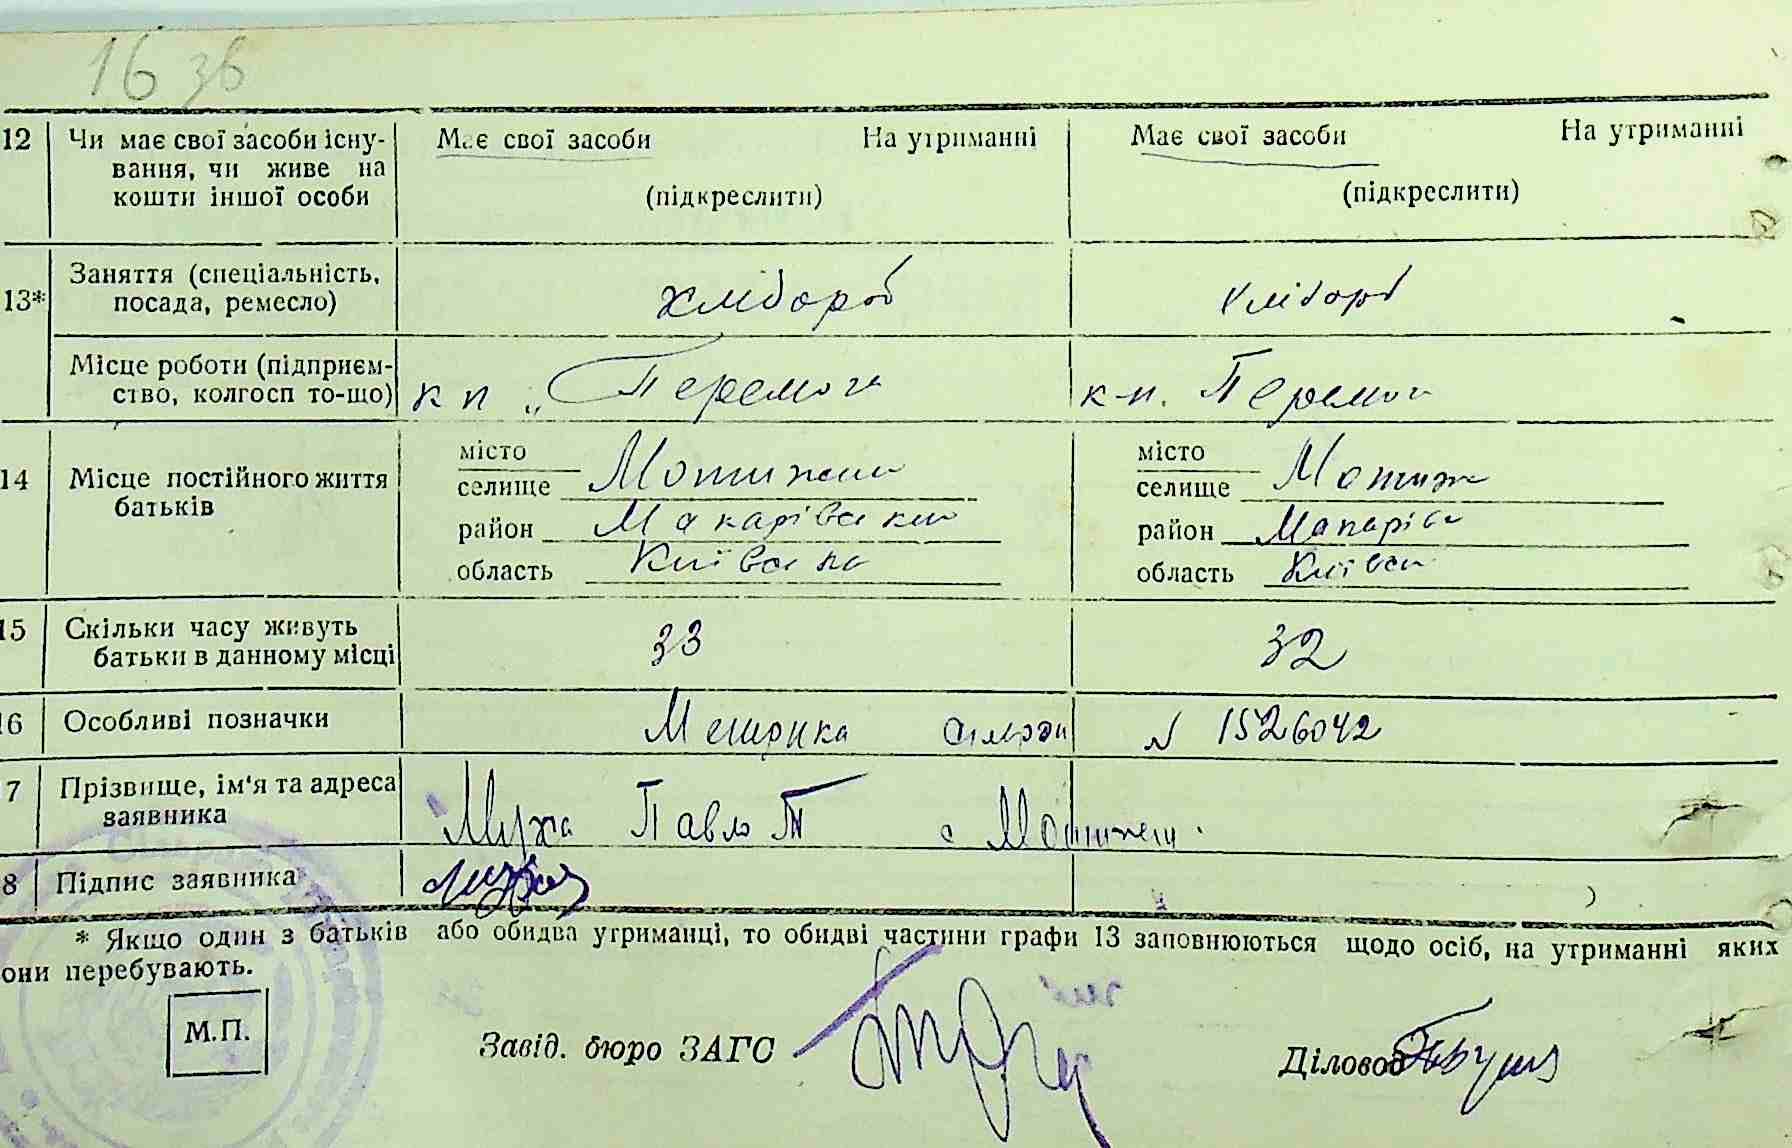 16 зв
12 Чи має свої засоби існу- Має свої засоби На утриманні Має свої засоби На утриманні
вання, чи живе на
кошти іншої особи (підкреслити) (підкреслити)
13* Заняття (спеціальність, хлібороб хлібороб
посада, ремесло)
Місце роботи (підприєм-
ство, колгосп то-що) к п „Перемога к-п. Перемога
14 Місце постійного життя батьків місто місто
селище Мотижин селище Мотиж
район Макарівський район Макарівс
область Київська область Київськ
15 Скільки часу живуть 33 32
батьки в данному місці
16 Особливі позначки Метрика N 1526042
7 Прізвище, ім'я та адреса
заявника Мужа Павло Т с Мотижин.
8 Підпис заявника
* Якщо один з батьків або обидва утриманці, то обидві частини графи 13 заповнюються щодо осіб, на утриманні яких
они перебувають.
М.П. Завід. бюро ЗАГС Діловод